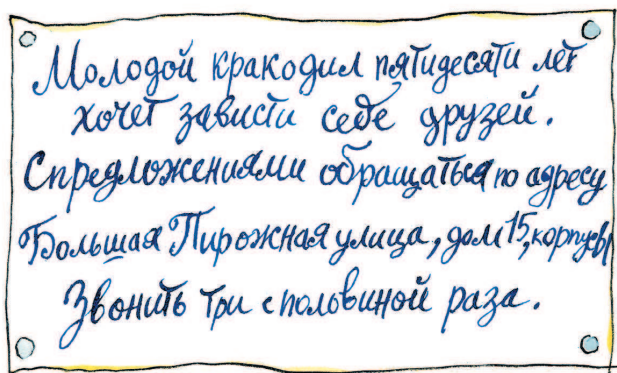 Молодой кракодил пятидесяти лет
хочет зависти себе друзей.
С предложениями обращаться по адресу
Большая Пирожная улица, дом 15, корпус Ы
Звонить три с половиной раза.